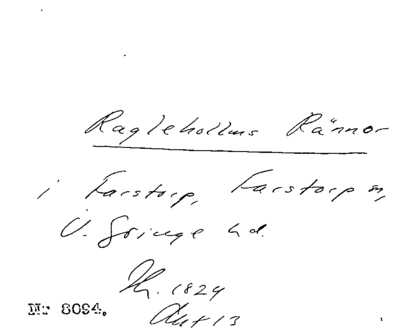 Raglehollms Rännor
i Farstorp, Farstorp sn,
V. Göinge hd.
Th. 1824
Akt 13
Nr 8094.